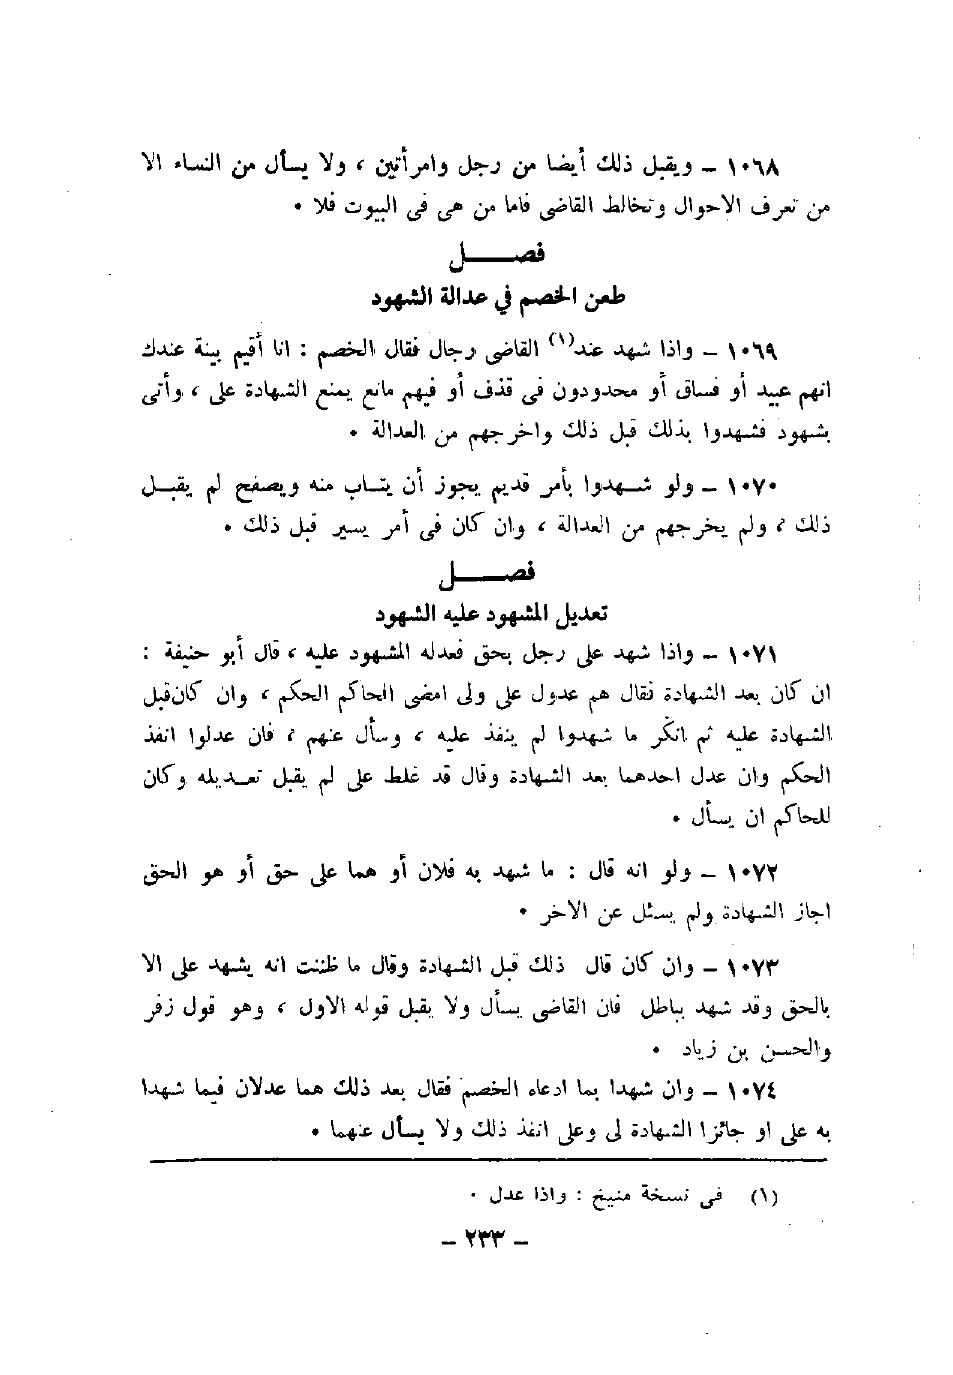 ١٠٦٨ ــ ويقبل ذلك أيضا من رجل وامرأتين ، ولا يسأل من النساء الا
من تعرف الاحوال وتخالط القاضى فاما من هى فى البيوت فلا ٠
فصـــــل
طعن الخصم في عدالة الشهود
١٠٦٩ ــ واذا شهد عند(١) القاضى رجال فقال الخصم : انا أقيم بينة عندك
انهم عبيد أو فساق أو محدودون فى قذف أو فيهم مانع يمنع الشهادة على ، وأتى
بشهود فشهدوا بذلك قبل ذلك واخرجهم من العدالة ٠
١٠٧٠ ــ ولو شــهدوا بأمر قديم يجوز أن يتــاب منه ويصفح لم يقبــل
ذلك ، ولم يخرجهم من العدالة ، وان كان فى أمر يسير قبل ذلك ٠
فصـــــل
تعديل المشهود عليه الشهود
١٠٧١ ــ واذا شهد على رجل بحق فعدله المشهود عليه ، قال أبو حنيفة :
ان كان بعد الشهادة فقال هم عدول على ولى امضى الحاكم الحكم ، وان كان قبل
الشهادة عليه ثم انكر ما شهدوا لم ينفذ عليه ، وسأل عنهم ، فان عدلوا انفذ
الحكم وان عدل احدهما بعد الشهادة وقال قد غلط على لم يقبل تعــديله وكان
للحاكم ان يسأل ٠
١٠٧٢ ــ ولو انه قال : ما شهد به فلان أو هما على حق أو هو الحق
اجاز الشهادة ولم يسئل عن الاخر ٠
١٠٧٣ ــ وان كان قال ذلك قبل الشهادة وقال ما ظننت انه يشهد على الا
بالحق وقد شهد بباطل فان القاضى يسأل ولا يقبل قوله الاول ، وهو قول زفر
والحسن بن زياد ٠
١٠٧٤ ــ وان شهدا بما ادعاه الخصم فقال بعد ذلك هما عدلان فيما شهدا
به على او جائزا الشهادة لى وعلى انفذ ذلك ولا يسأل عنهما ٠
(١) فى نسخة منيخ : واذا عدل ٠
ــ ٢٣٣ ــ